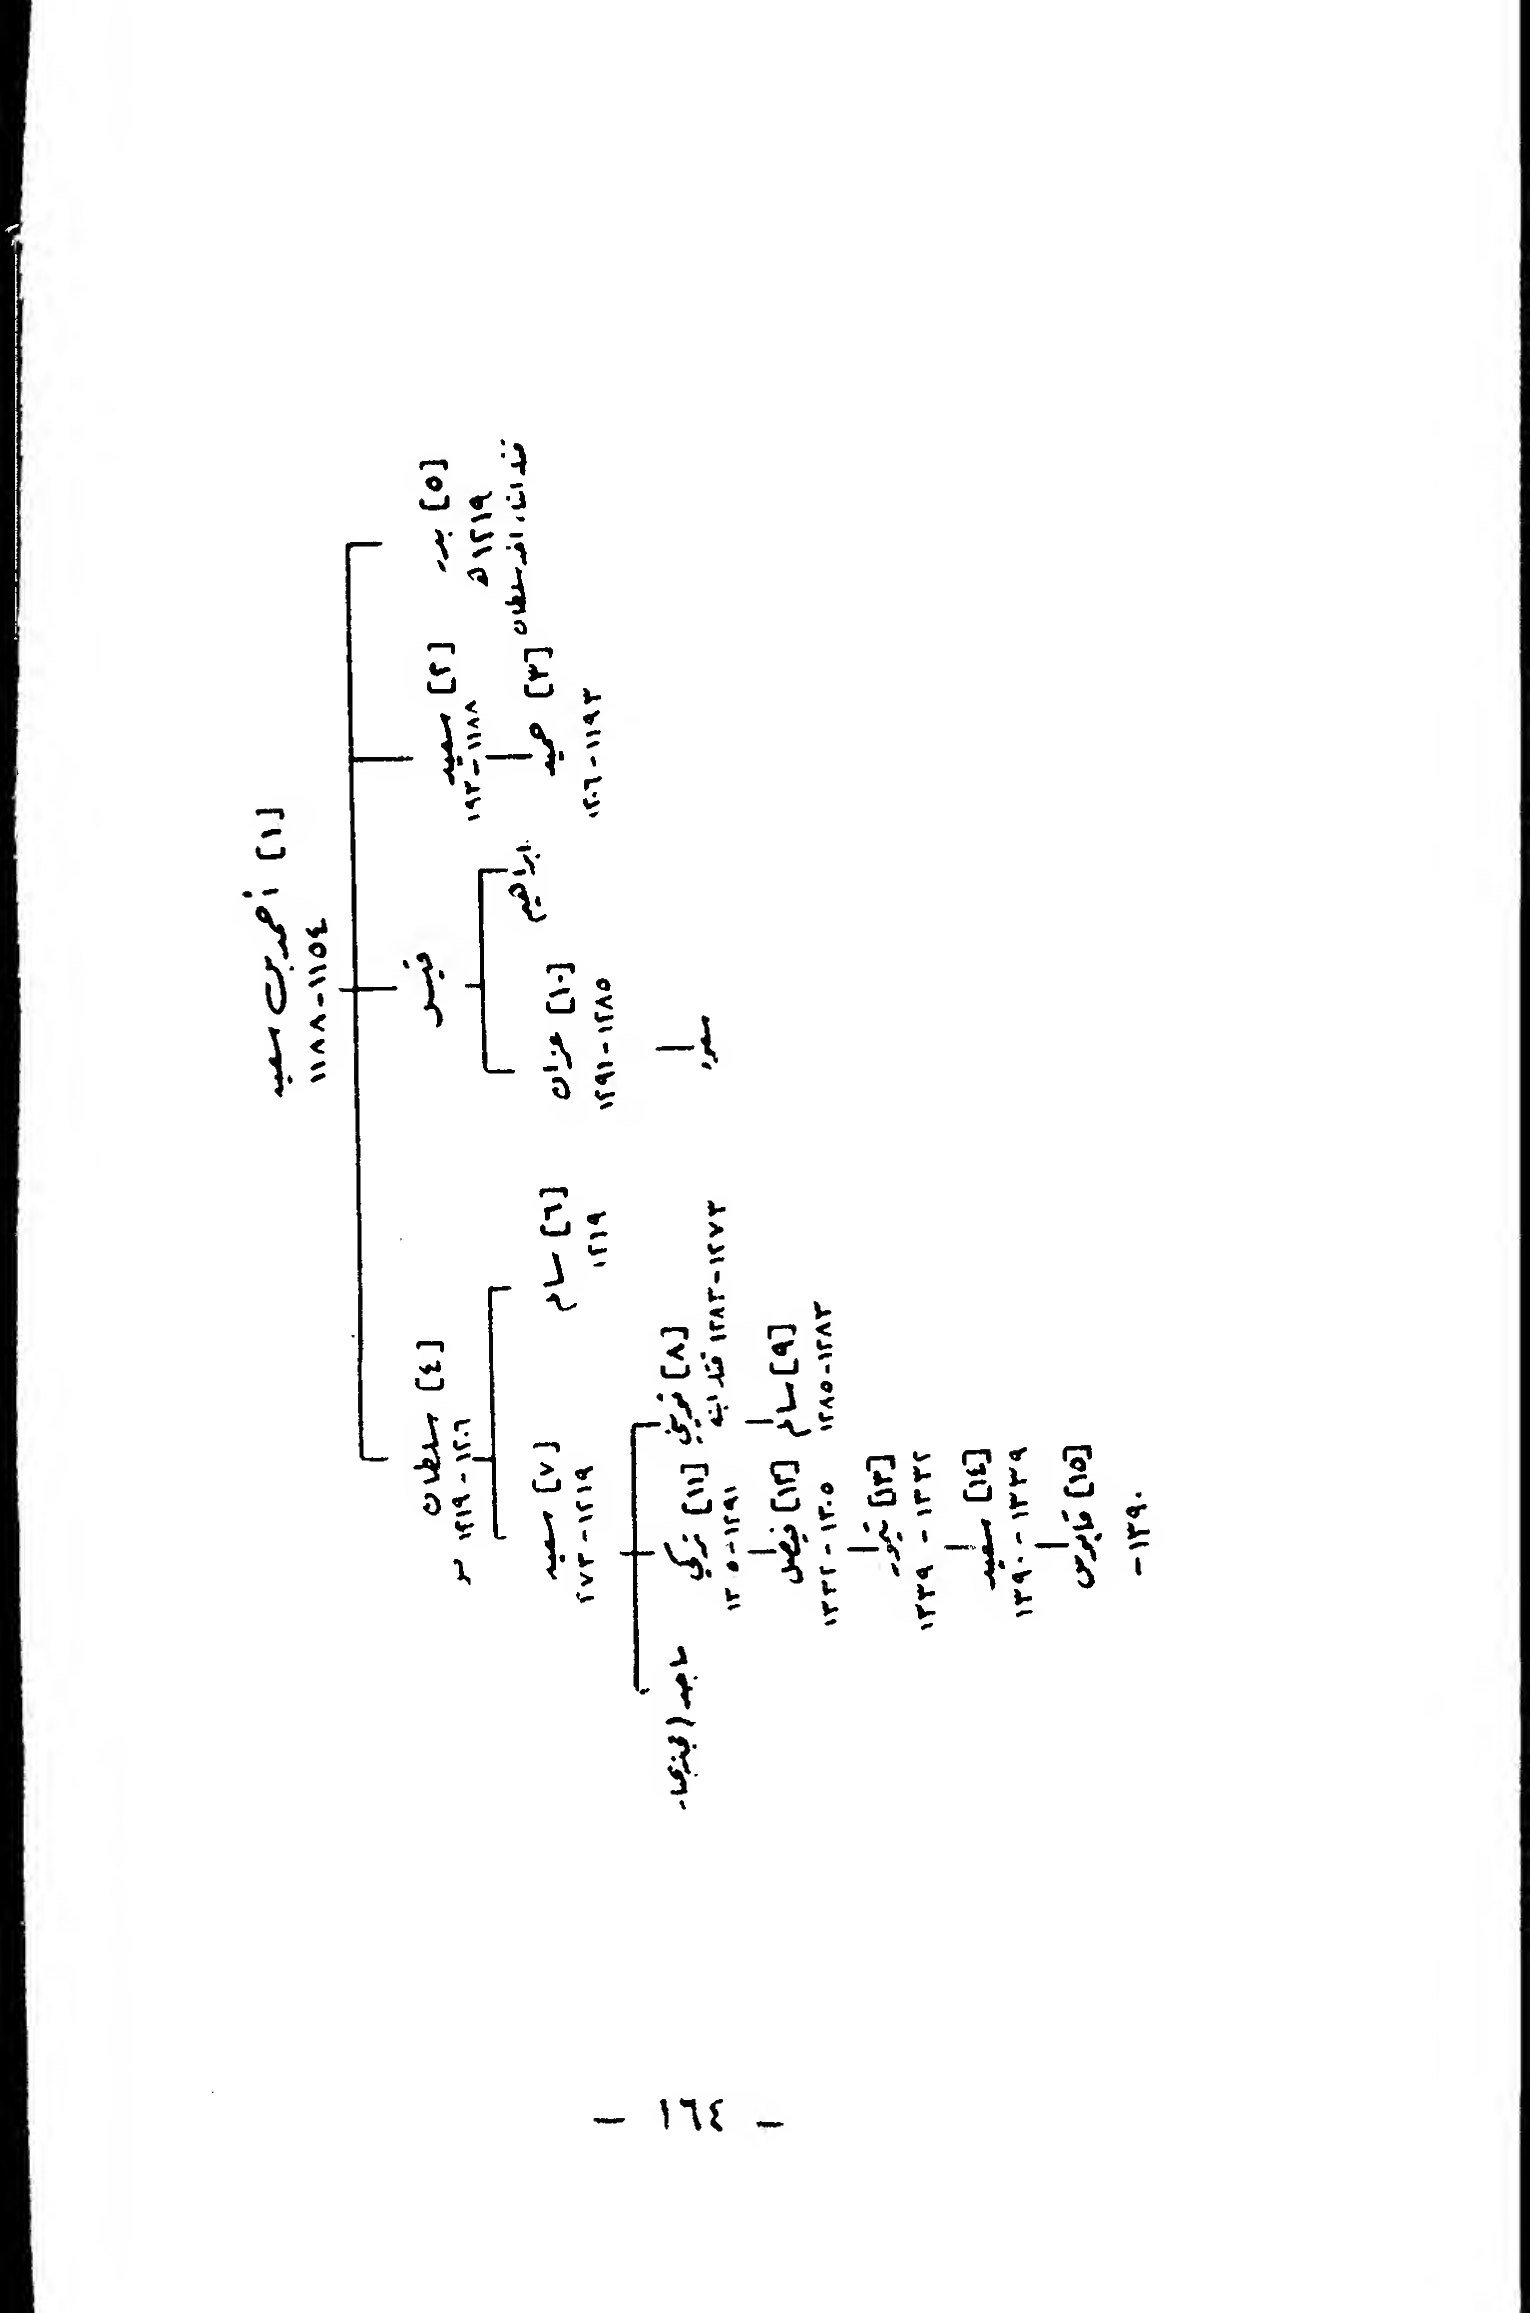 [١] أحمد بن سعيد
١١٥٤-١١٨٨
[٥] بدر
١٢١٩ هـ
قتله ابناء اخيه سلطان
[٢] سعيد
١١٨٨-١٩٣
[٣] حميد
١١٩٣-١٢٠٦
قيس
ابراهيم
[١٠] عزان
١٢٨٥-١٢٩١
[٤] سلطان
١٢٠٦-١٢١٩
[٦] سالم
١٢١٩
[٧] سعيد
١٢١٩-٢٧٣
[٨] ثويني
١٢٧٣-١٢٨٣ قتله ابنه
[٩] سالم
١٢٨٣-١٢٨٥
[١١] تركي
١٢٩١-١٣٠٥
[١٢] فيصل
١٣٠٥-١٣٣٢
[١٣] تيمور
١٣٣٢-١٣٣٩
[١٤] سعيد
١٣٣٩-١٣٩٠
[١٥] قابوس
١٣٩٠-
ماجد (
- ١٦٤ -